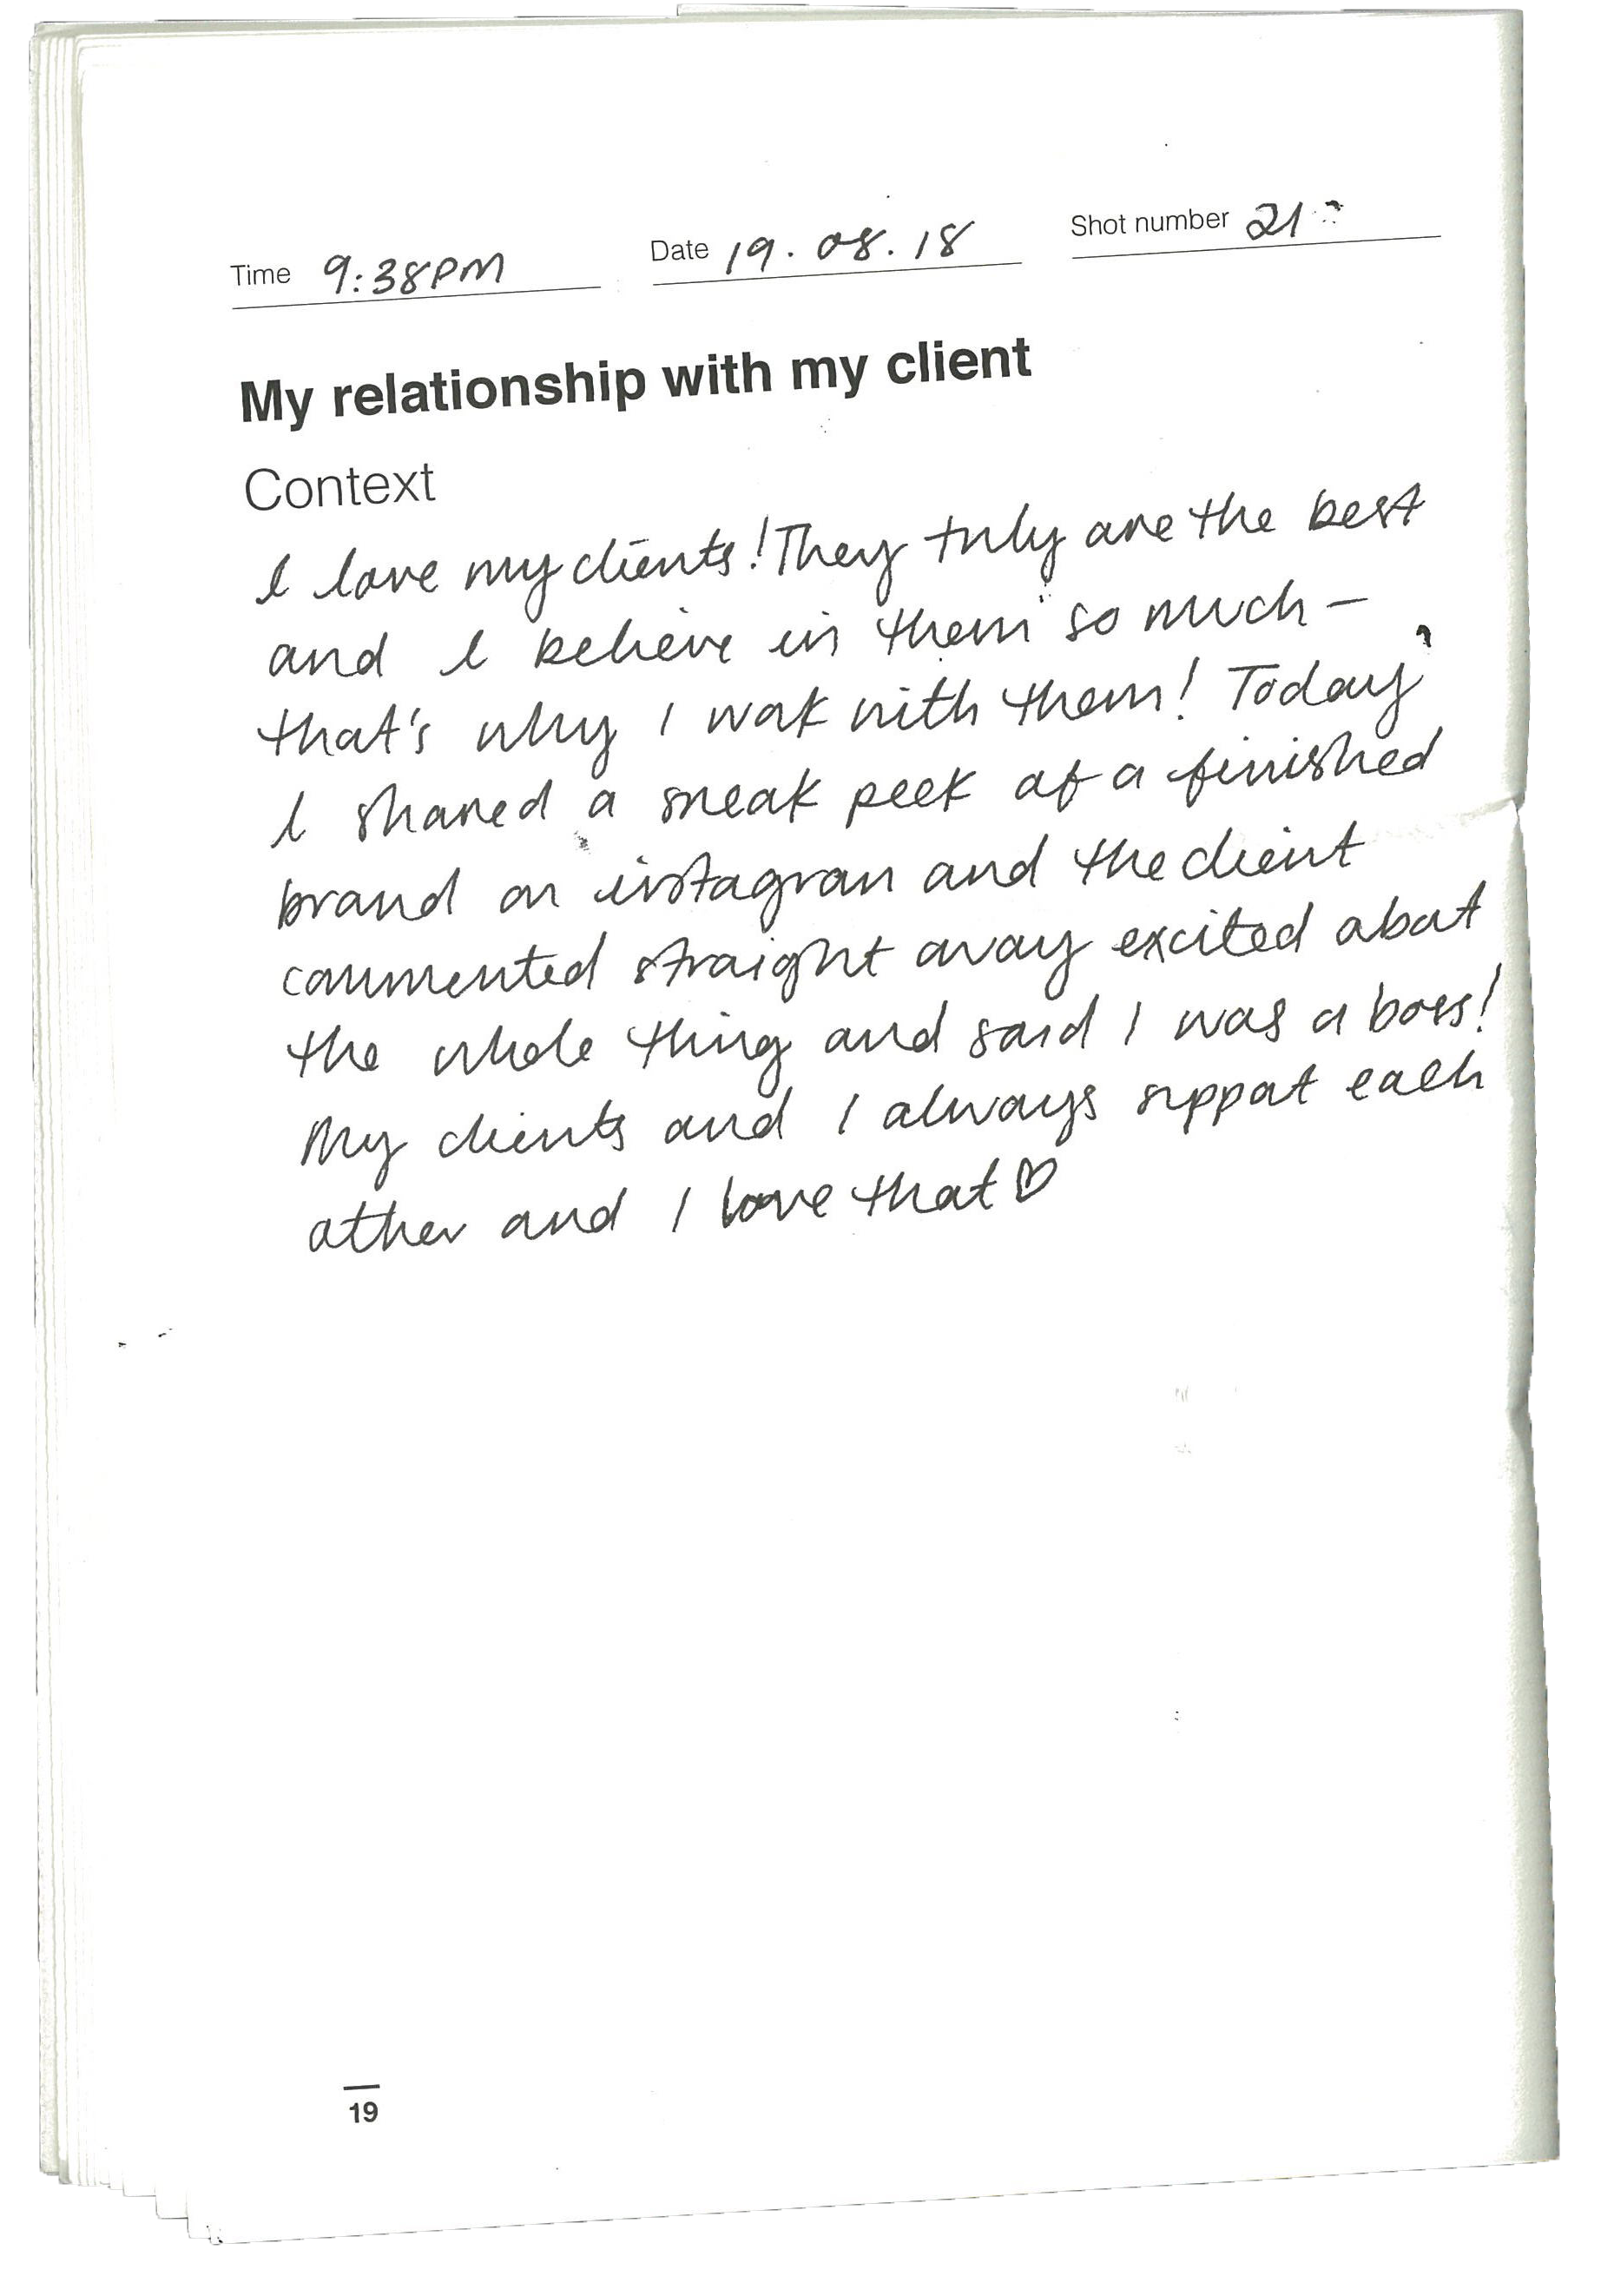 Time 9:38PM Date 19.08.18 Shot number 21
My relationship with my client
Context
I love my clients! They truly are the best
and I believe in them so much –
that's why I work with them! Today
I shared a sneak peek of a finished
brand on instagram and the client
commented straight away excited about
the whole thing and said I was a boss!
My clients and I always support each
other and I love that ♡
19